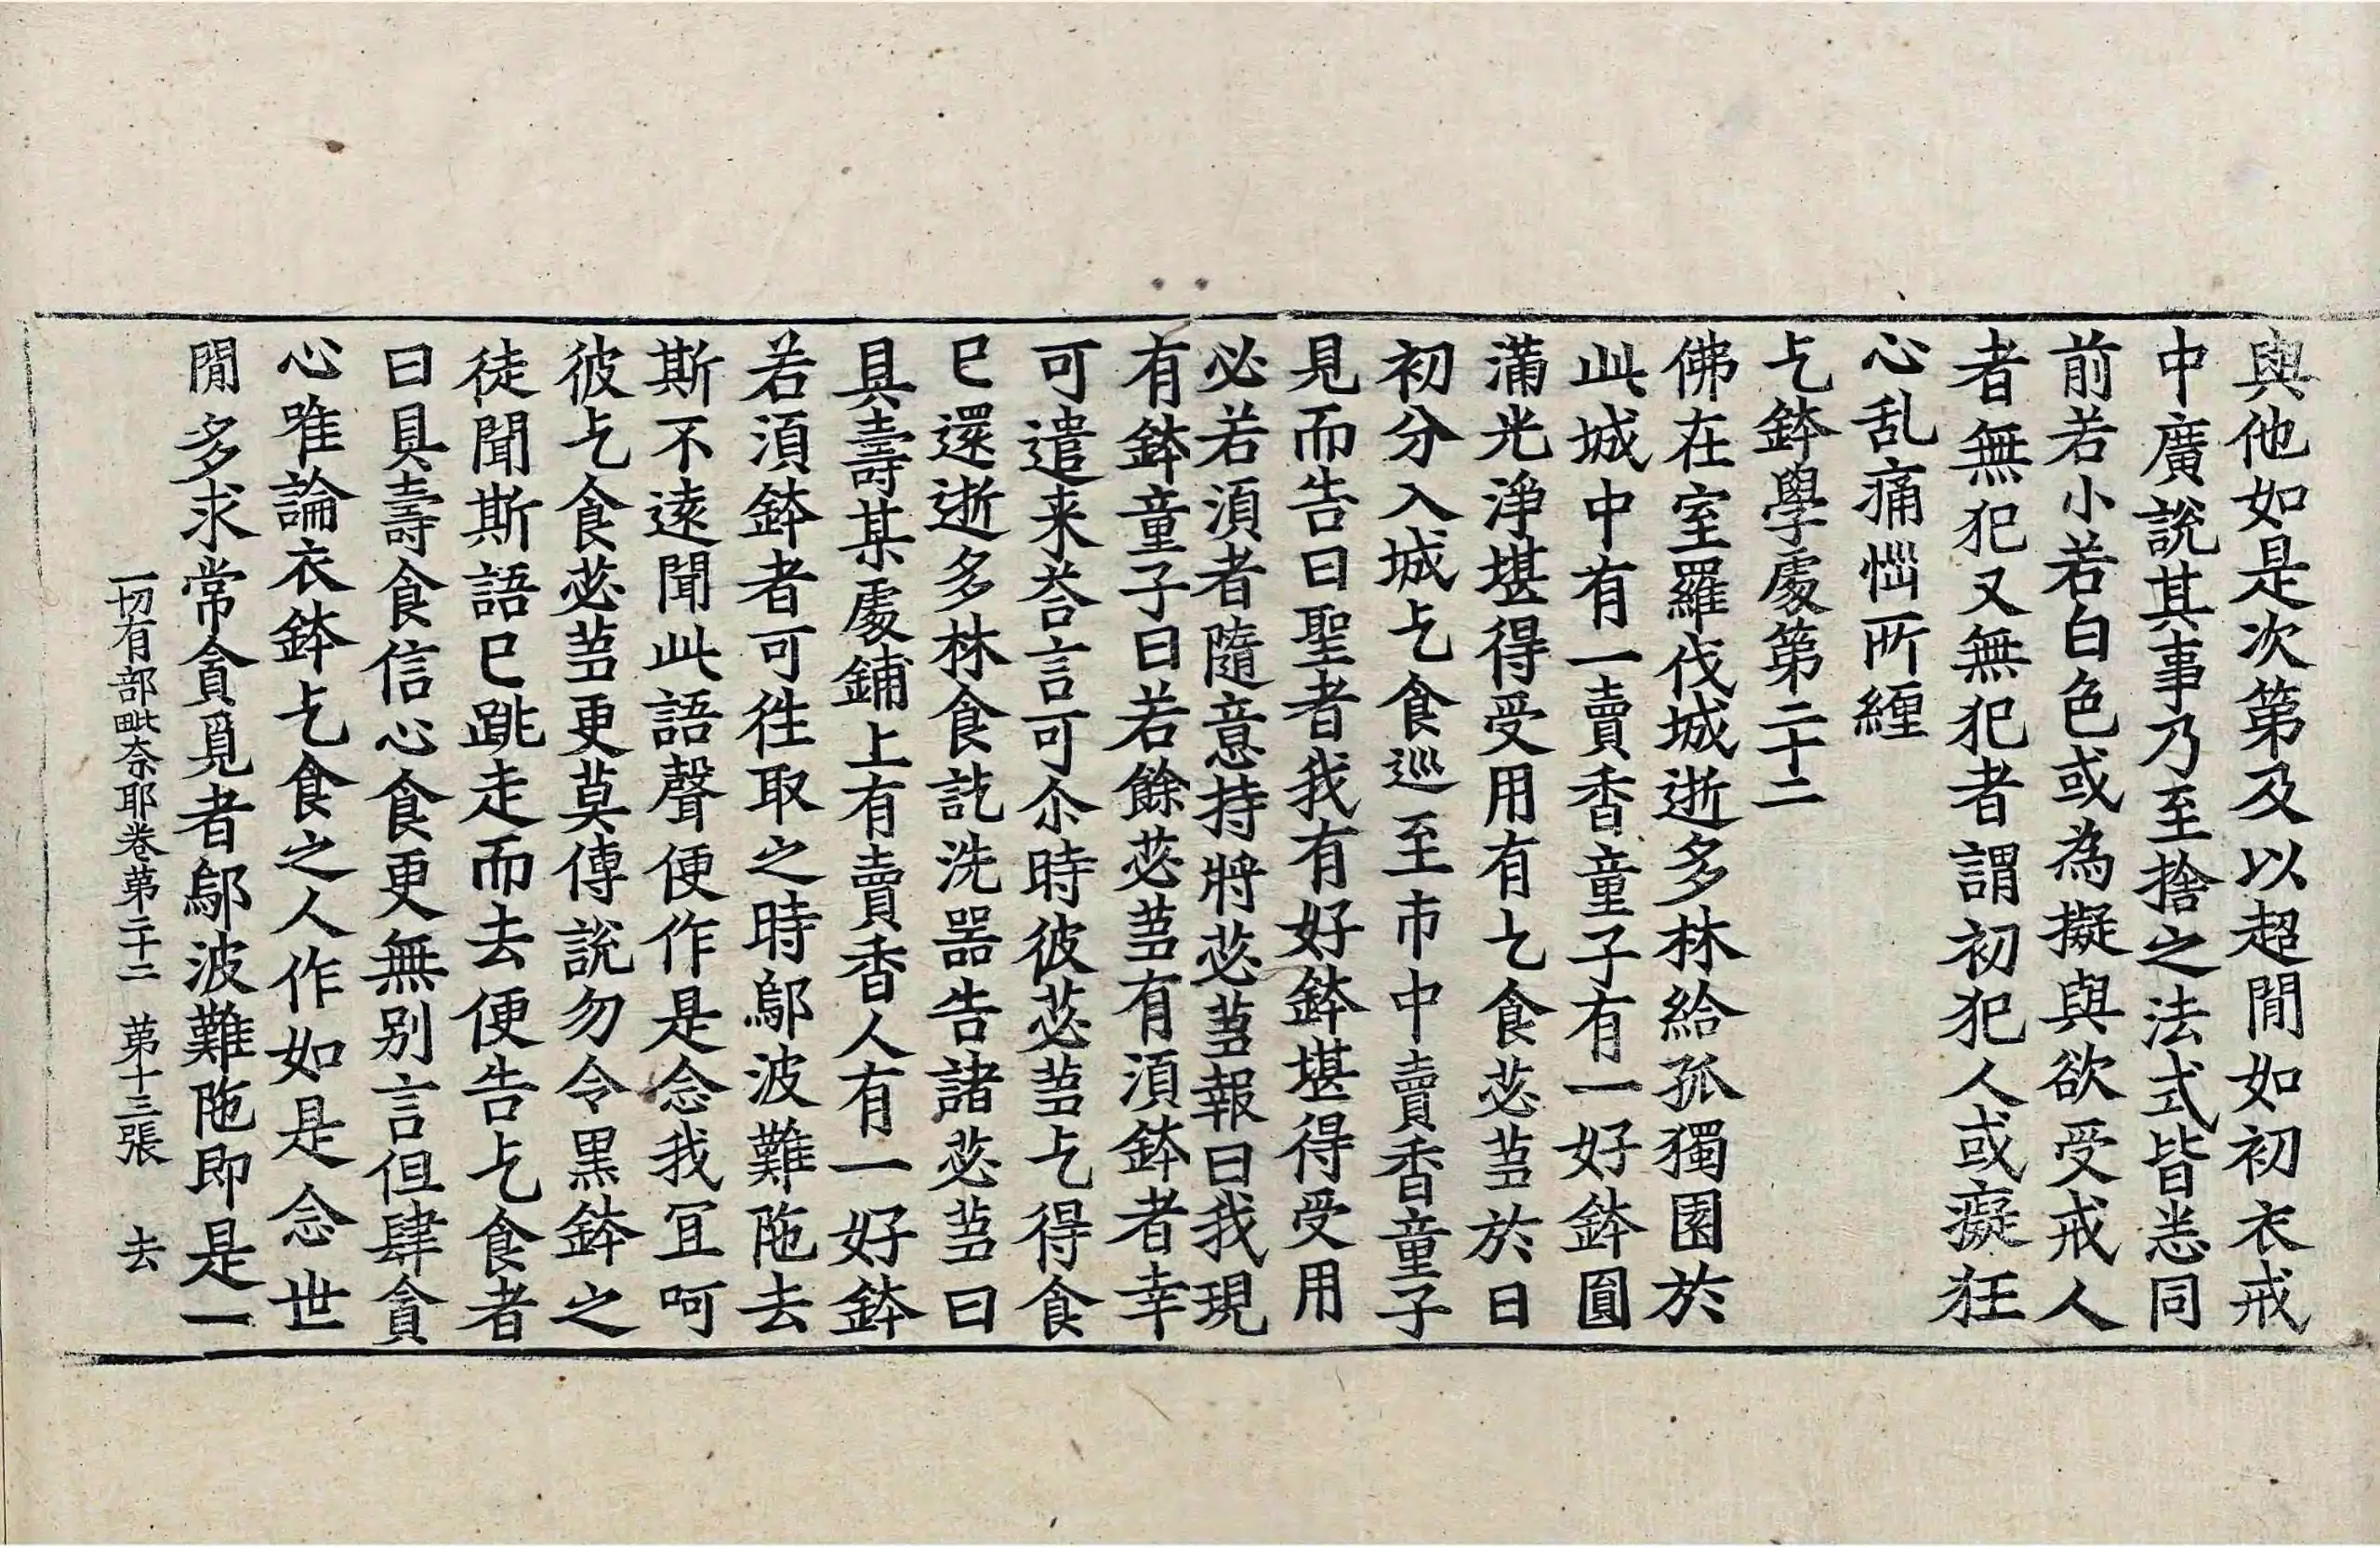 與他如是次第及以超閒如初衣戒
中廣說其事乃至捨之法式皆悉同
前若小若白色或為擬與欲受戒人
者無犯又無犯者謂初犯人或癡狂
心乱痛惱所纏
乞鉢學處第二十二
佛在室羅伐城逝多林給孤獨園於
此城中有一賣香童子有一好鉢圓
滿光淨堪得受用有乞食苾芻於日
初分入城乞食巡至市中賣香童子
見而告曰聖者我有好鉢堪得受用
必若須者隨意持將苾芻報曰我現
有鉢童子曰若餘苾芻有須鉢者幸
可遣来荅言可尒時彼苾芻乞得食
已還逝多林食訖洗器告諸苾芻曰
具壽某處鋪上有賣香人有一好鉢
若須鉢者可往取之時鄔波難陁去
斯不遠聞此語聲便作是念我冝呵
彼乞食苾芻更莫傳說勿令黑鉢之
徒聞斯語已跳走而去便告乞食者
曰具壽食信心食更無别言但肆貪
心唯論衣鉢乞食之人作如是念世
閒多求常貪覓者鄔波難陁即是一
一切有部毗奈耶卷第二十二 第十三張 去